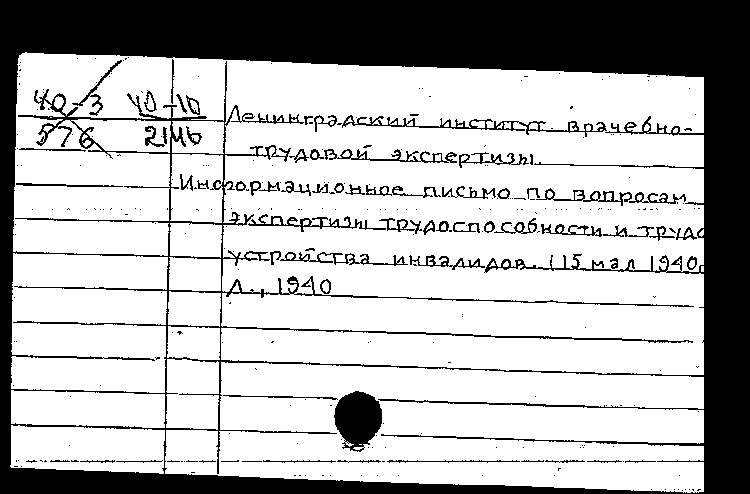 40-3 40-10
576 2146
Ленинградский институт врачебно-
трудовой экспертизы.
Информационное письмо по вопросам
экспертизы трудоспособности и трудо
устройства инвалидов. (15 мая 1940г
Л., 1940